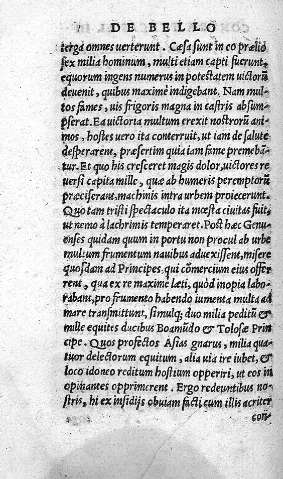 DE BELLO
terga omnes uerterunt. Cæsa sunt in eo prælio
sex milia hominum, multi etiam capti fuerunt,
equorum ingens numerus in potestatem uictorũ
deuenit, quibus maxime indigebant. Nam mul
tos fames, uis frigoris magna in castris absum
pserat. Ea uictoria multum erexit nostrorũ ani
mos, hostes uero ita conterruit, ut iam de salute
desperarent, præsertim quia iam fame premebã
tur. Et quo his cresceret magis dolor, uictores re
uersi capita mille, quæ ab humeris peremptorũ
præciserant, machinis intra urbem proiecerunt.
Quo tam tristi spectaculo ita mœsta ciuitas fuit,
ut nemo à lachrimis temperaret. Post hæc Genu
enses quidam quum in portu non procul ab urbe
multum frumentum nauibus aduexissent, misere
quosdam ad Principes, qui cõmercium eius offer
rent, qua ex re maxime læti, quòd inopia labo
rabant, pro frumento habendo iumenta multa ad
mare transmittunt, simulq; duo milia peditũ &
mille equites ducibus Boamũdo & Tolosæ Prin
cipe. Quos profectos Asias gnarus, milia qua
tuor delectorum equitum, alia uia ire iubet, &
loco idoneo reditum hostium opperiri, ut eos in
opinantes opprimerent. Ergo redeuntibus no-
stris, hi ex insidijs obuiam facti, cum illis acriter
con-